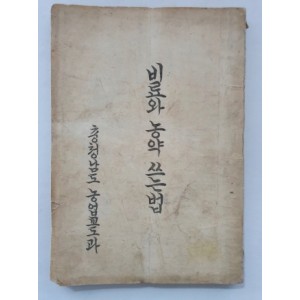 비료와 농약 쓰는법
충청남도 농업지도과